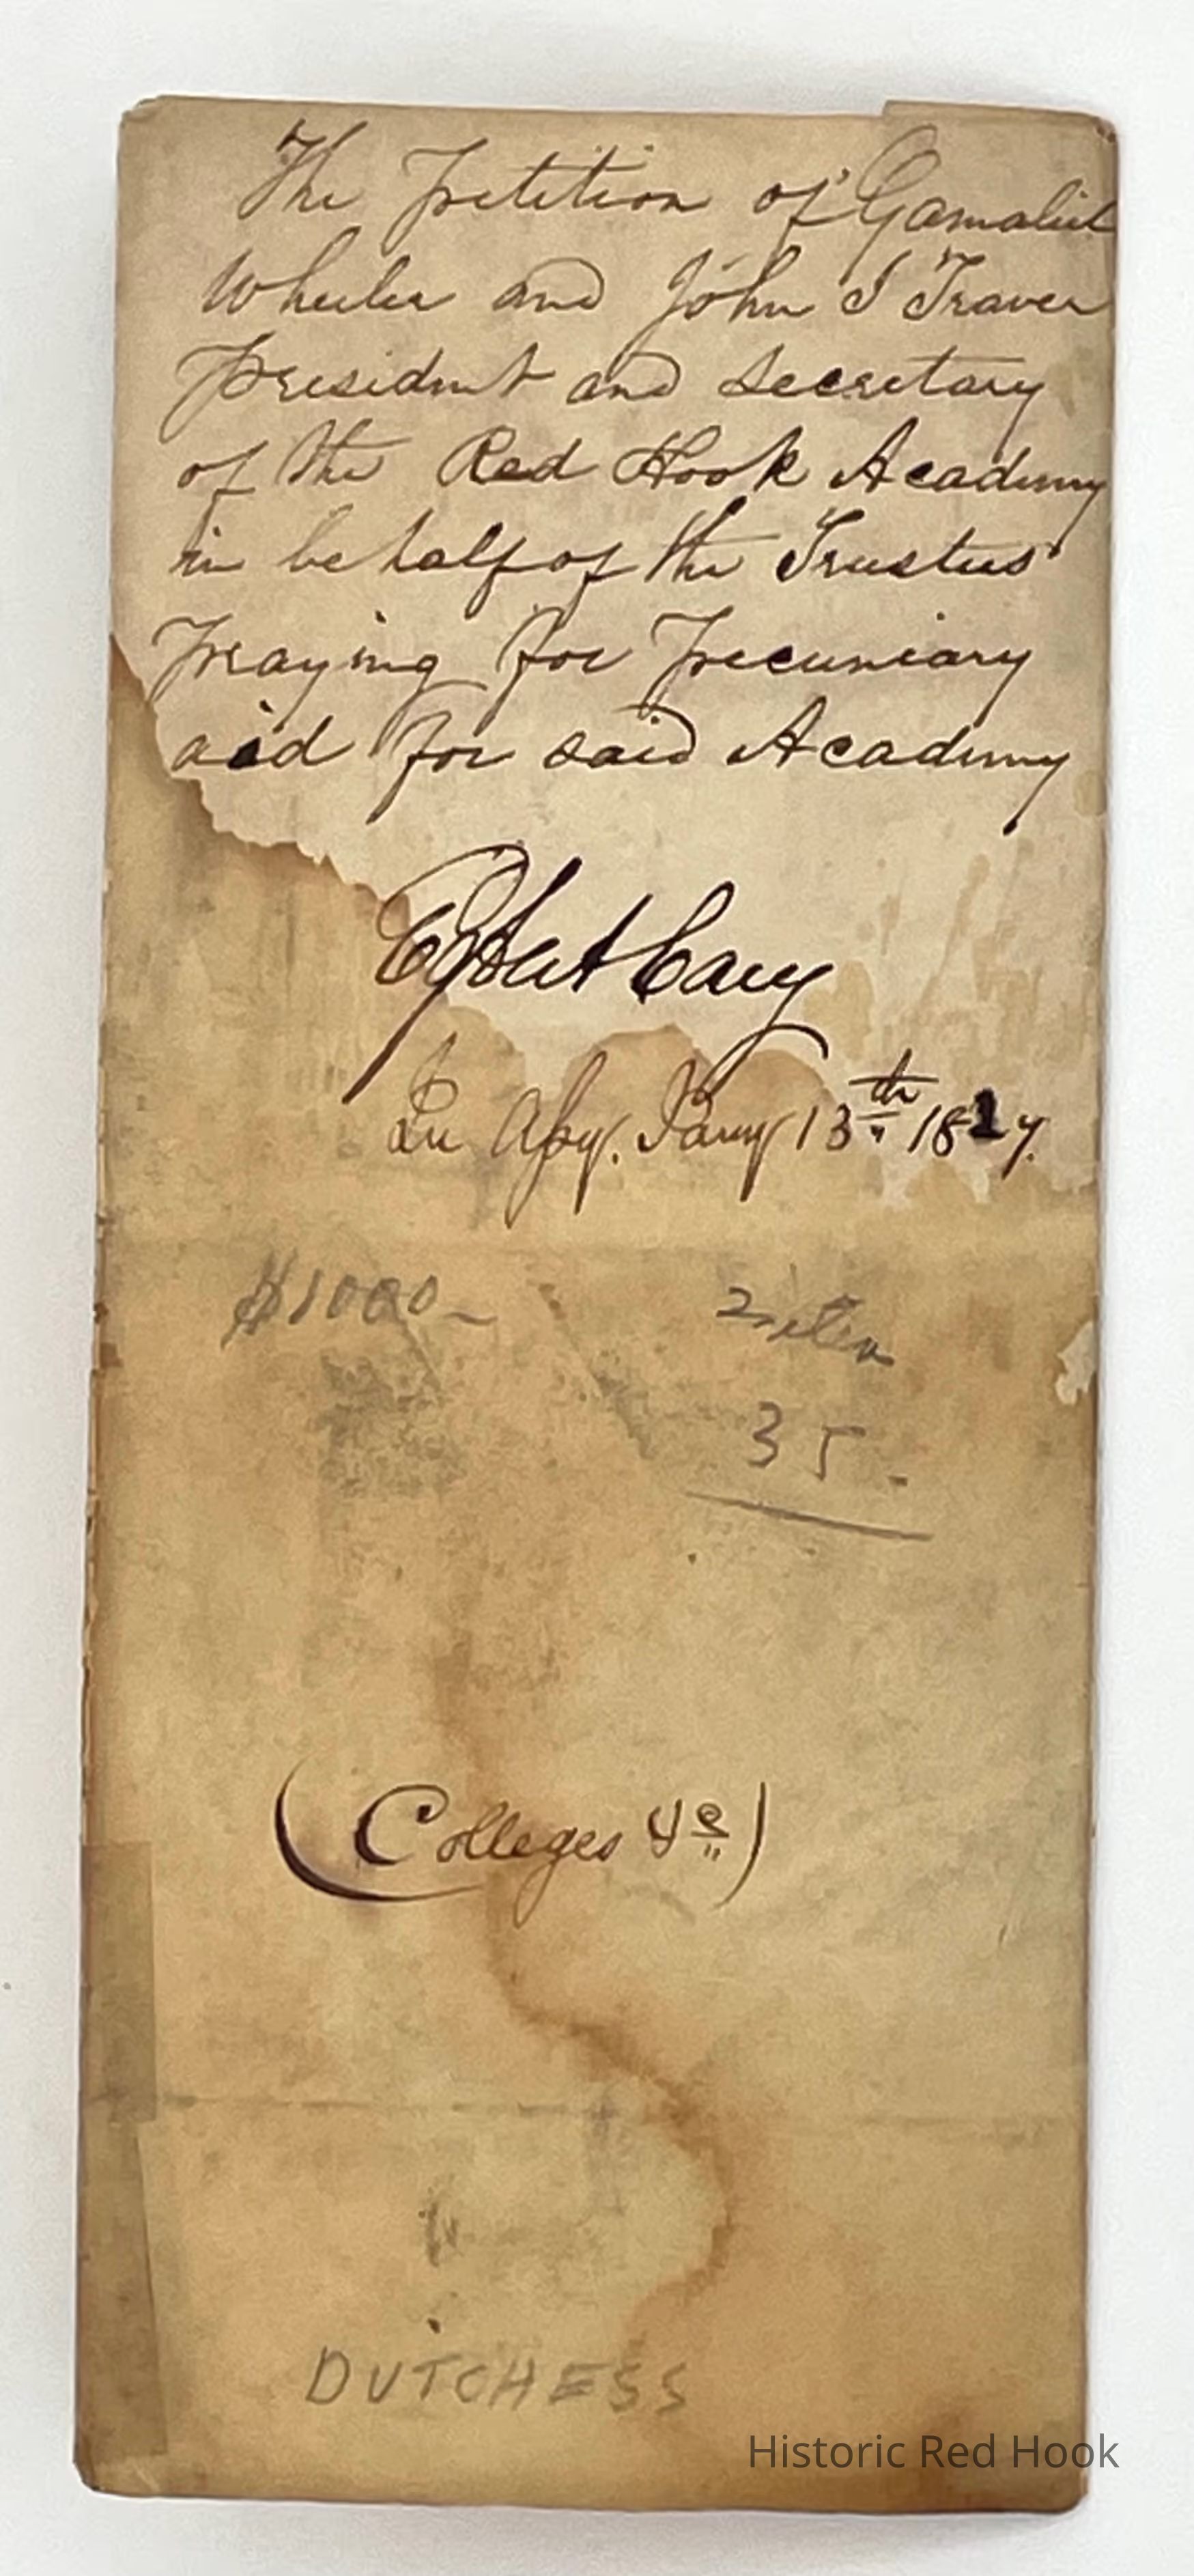 The petition of Gamaliel
Wheeler and John I Traver
President and Secretary
of the Red Hook Academy
in behalf of the Trustees
Praying for Pecuniary
aid for said Academy
Egbert Cary
In Asy. Jany 13th 1827.
$1000-
35-
(Colleges &c)
DUTCHESS
Historic Red Hook